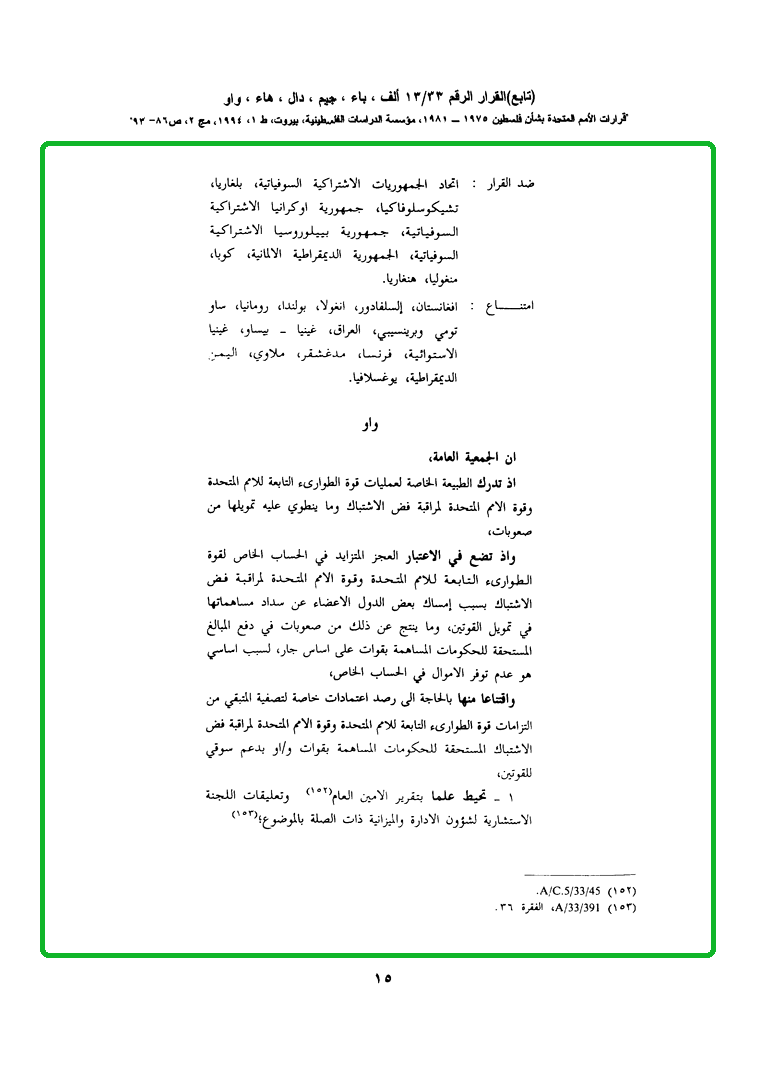 (تابع)القرار الرقم ١٣/٣٣ ألف ، باء ، جيم ، دال ، هاء ، واو
"قرارات الأمم المتحدة بشأن فلسطين ١٩٧٥ – ١٩٨١، مؤسسة الدراسات الفلسطينية، بيروت، ط ١، ١٩٩٤، مج ٢، ص٨٦- ٩٣"
ضد القرار : اتحاد الجمهوريات الاشتراكية السوفياتية، بلغاريا،
تشيكوسلوفاكيا، جمهورية اوكرانيا الاشتراكية
السوفياتية، جمهورية بييلوروسيا الاشتراكية
السوفياتية، الجمهورية الديمقراطية الالمانية، كوبا،
منغوليا، هنغاريا.
امتنـــــاع : افغانستان، إلسلفادور، انغولا، بولندا، رومانيا، ساو
تومي وبرينسيبي، العراق، غينيا - بيساو، غينيا
الاستوائية، فرنسا، مدغشقر، ملاوي، اليمن
الديمقراطية، يوغسلافيا.
واو
ان الجمعية العامة،
اذ تدرك الطبيعة الخاصة لعمليات قوة الطوارىء التابعة للامم المتحدة
وقوة الامم المتحدة لمراقبة فض الاشتباك وما ينطوي عليه تمويلها من
صعوبات،
واذ تضع في الاعتبار العجز المتزايد في الحساب الخاص لقوة
الطوارىء التابعة للامم المتحدة وقوة الامم المتحدة لمراقبة فض
الاشتباك بسبب إمساك بعض الدول الاعضاء عن سداد مساهماتها
في تمويل القوتين، وما ينتج عن ذلك من صعوبات في دفع المبالغ
المستحقة للحكومات المساهمة بقوات على اساس جار، لسبب اساسي
هو عدم توفر الاموال في الحساب الخاص،
واقتناعا منها بالحاجة الى رصد اعتمادات خاصة لتصفية المتبقي من
التزامات قوة الطوارىء التابعة للامم المتحدة وقوة الامم المتحدة لمراقبة فض
الاشتباك المستحقة للحكومات المساهمة بقوات و/او بدعم سوقي
للقوتين،
١ - تحيط علما بتقرير الامين العام(١٥٢) وتعليقات اللجنة
الاستشارية لشؤون الادارة والميزانية ذات الصلة بالموضوع؛(١٥٣)
(١٥٢) A/C.5/33/45.
(١٥٣) A/33/391، الفقرة ٣٦.
١٥